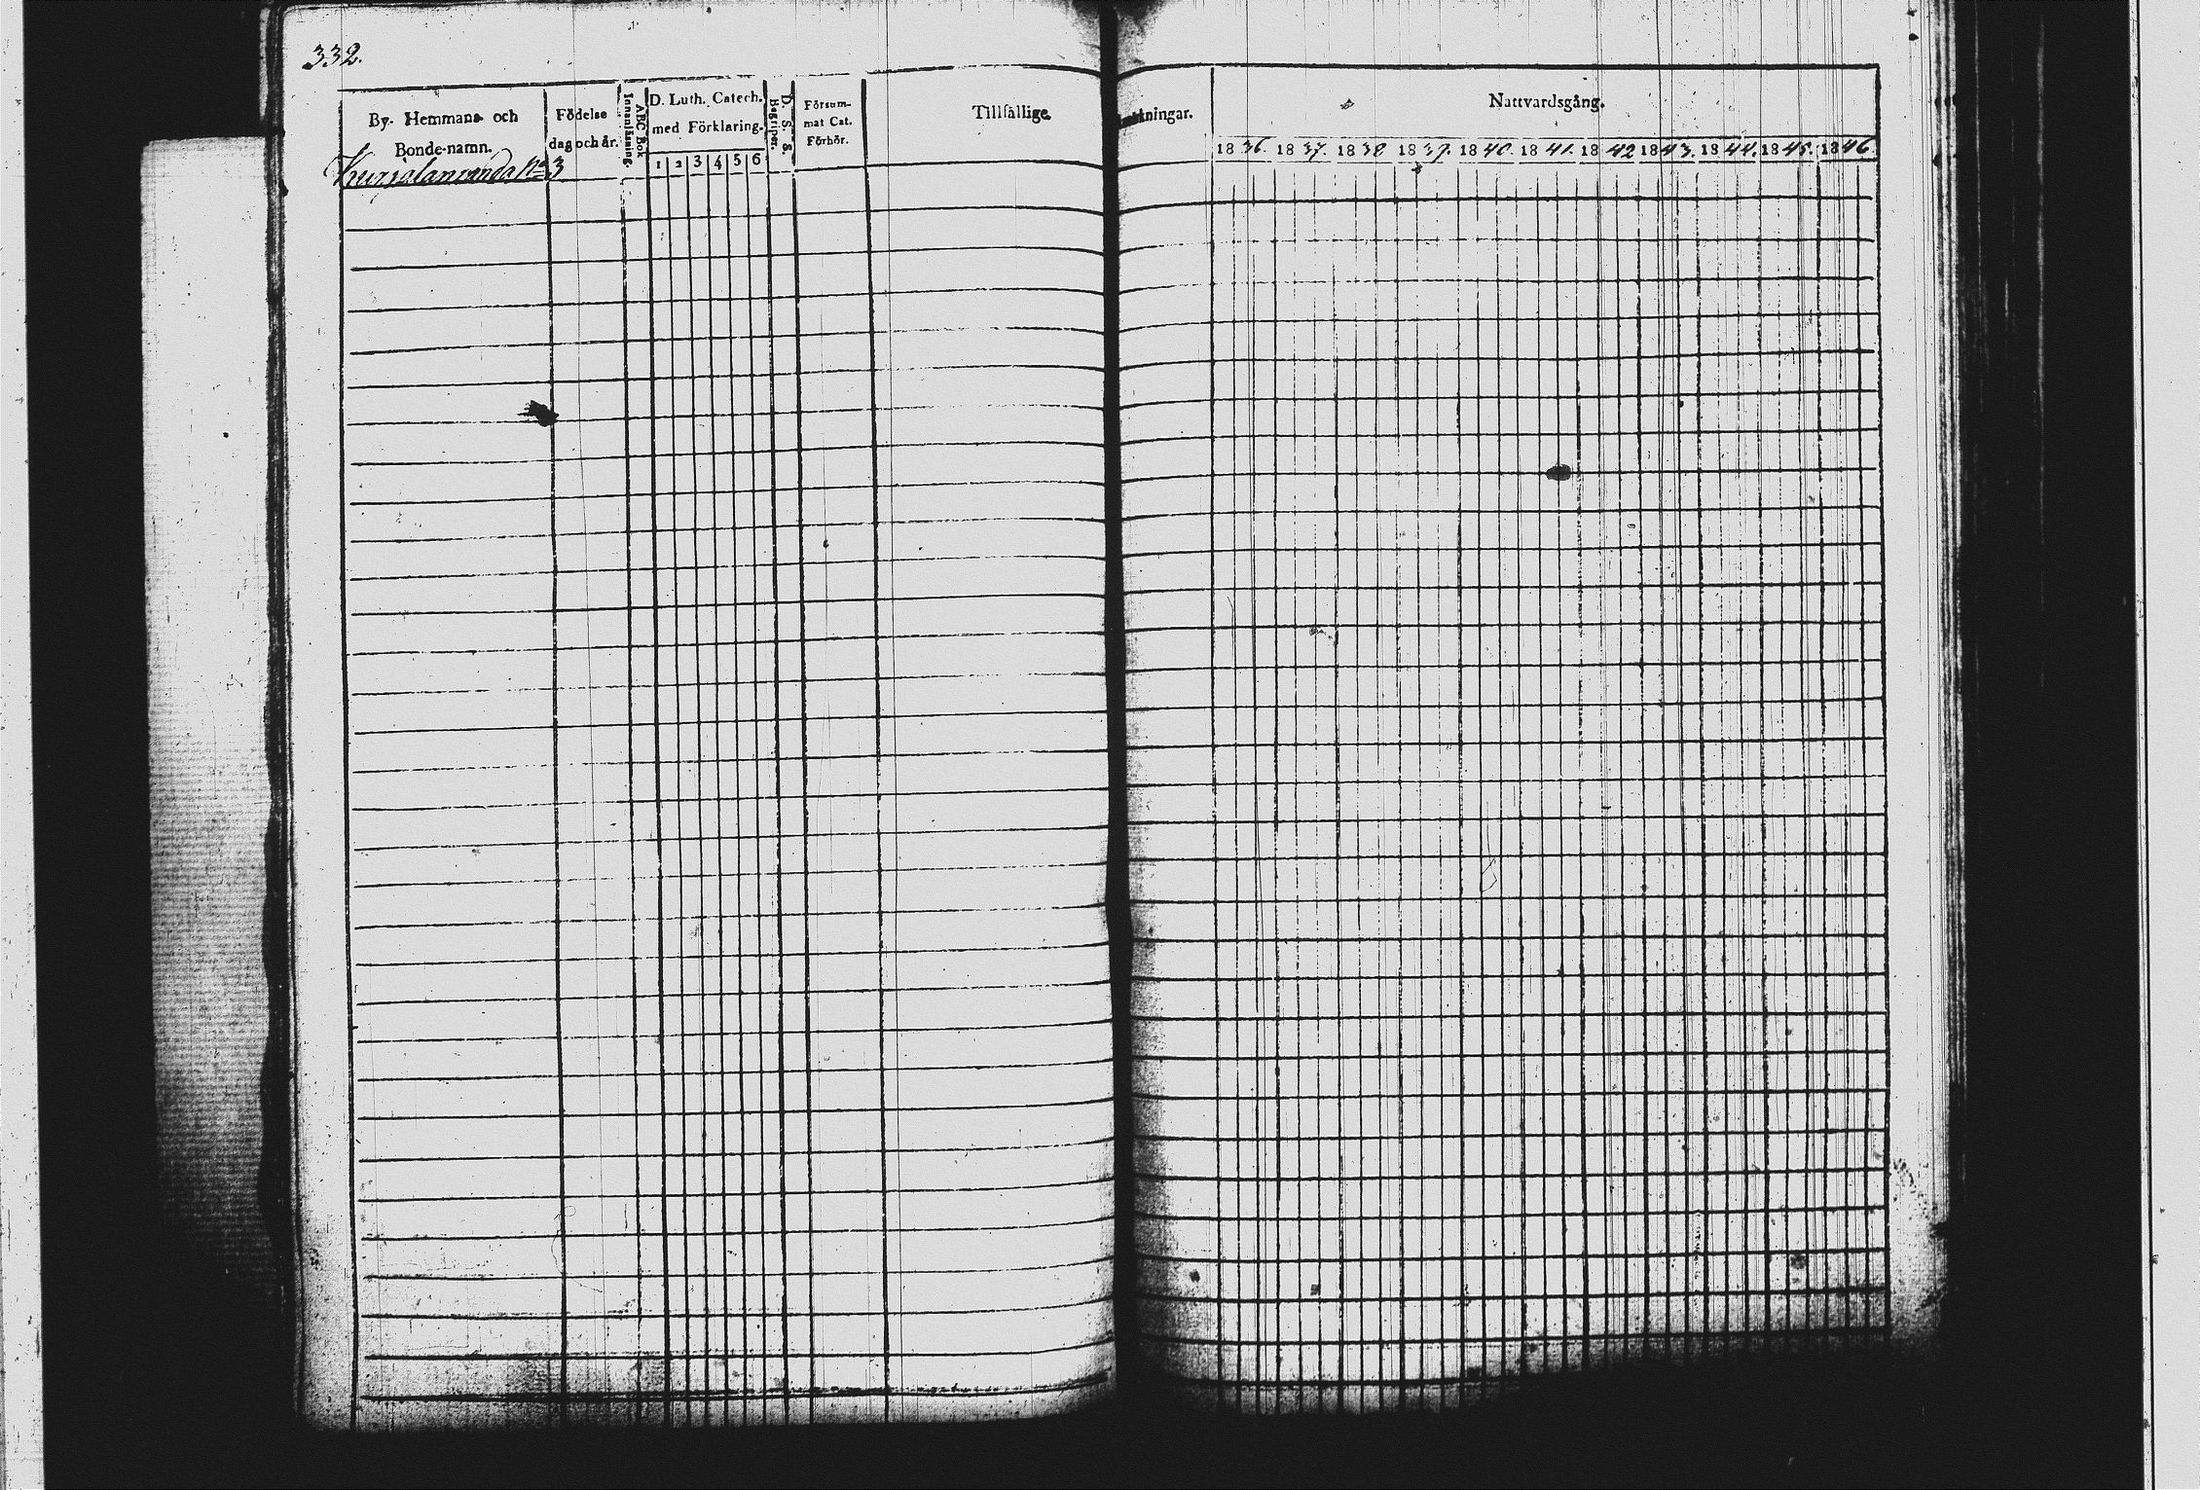 332.
By- Hemmans- och
Bonde-namn.
Födelse
dag och år.
ABC Bok
Innanläsning.
D. Luth. Catech.
med Förklaring.
1 2 3 4 5 6
D. S. S.
Begriper.
Försum-
mat Cat.
Förhör.
Tillfällige
kningar.
Nattvardsgång.
1836. 1837. 1838 1837. 1840. 1841. 1842 1843. 1844. 1845. 1846.
No 3